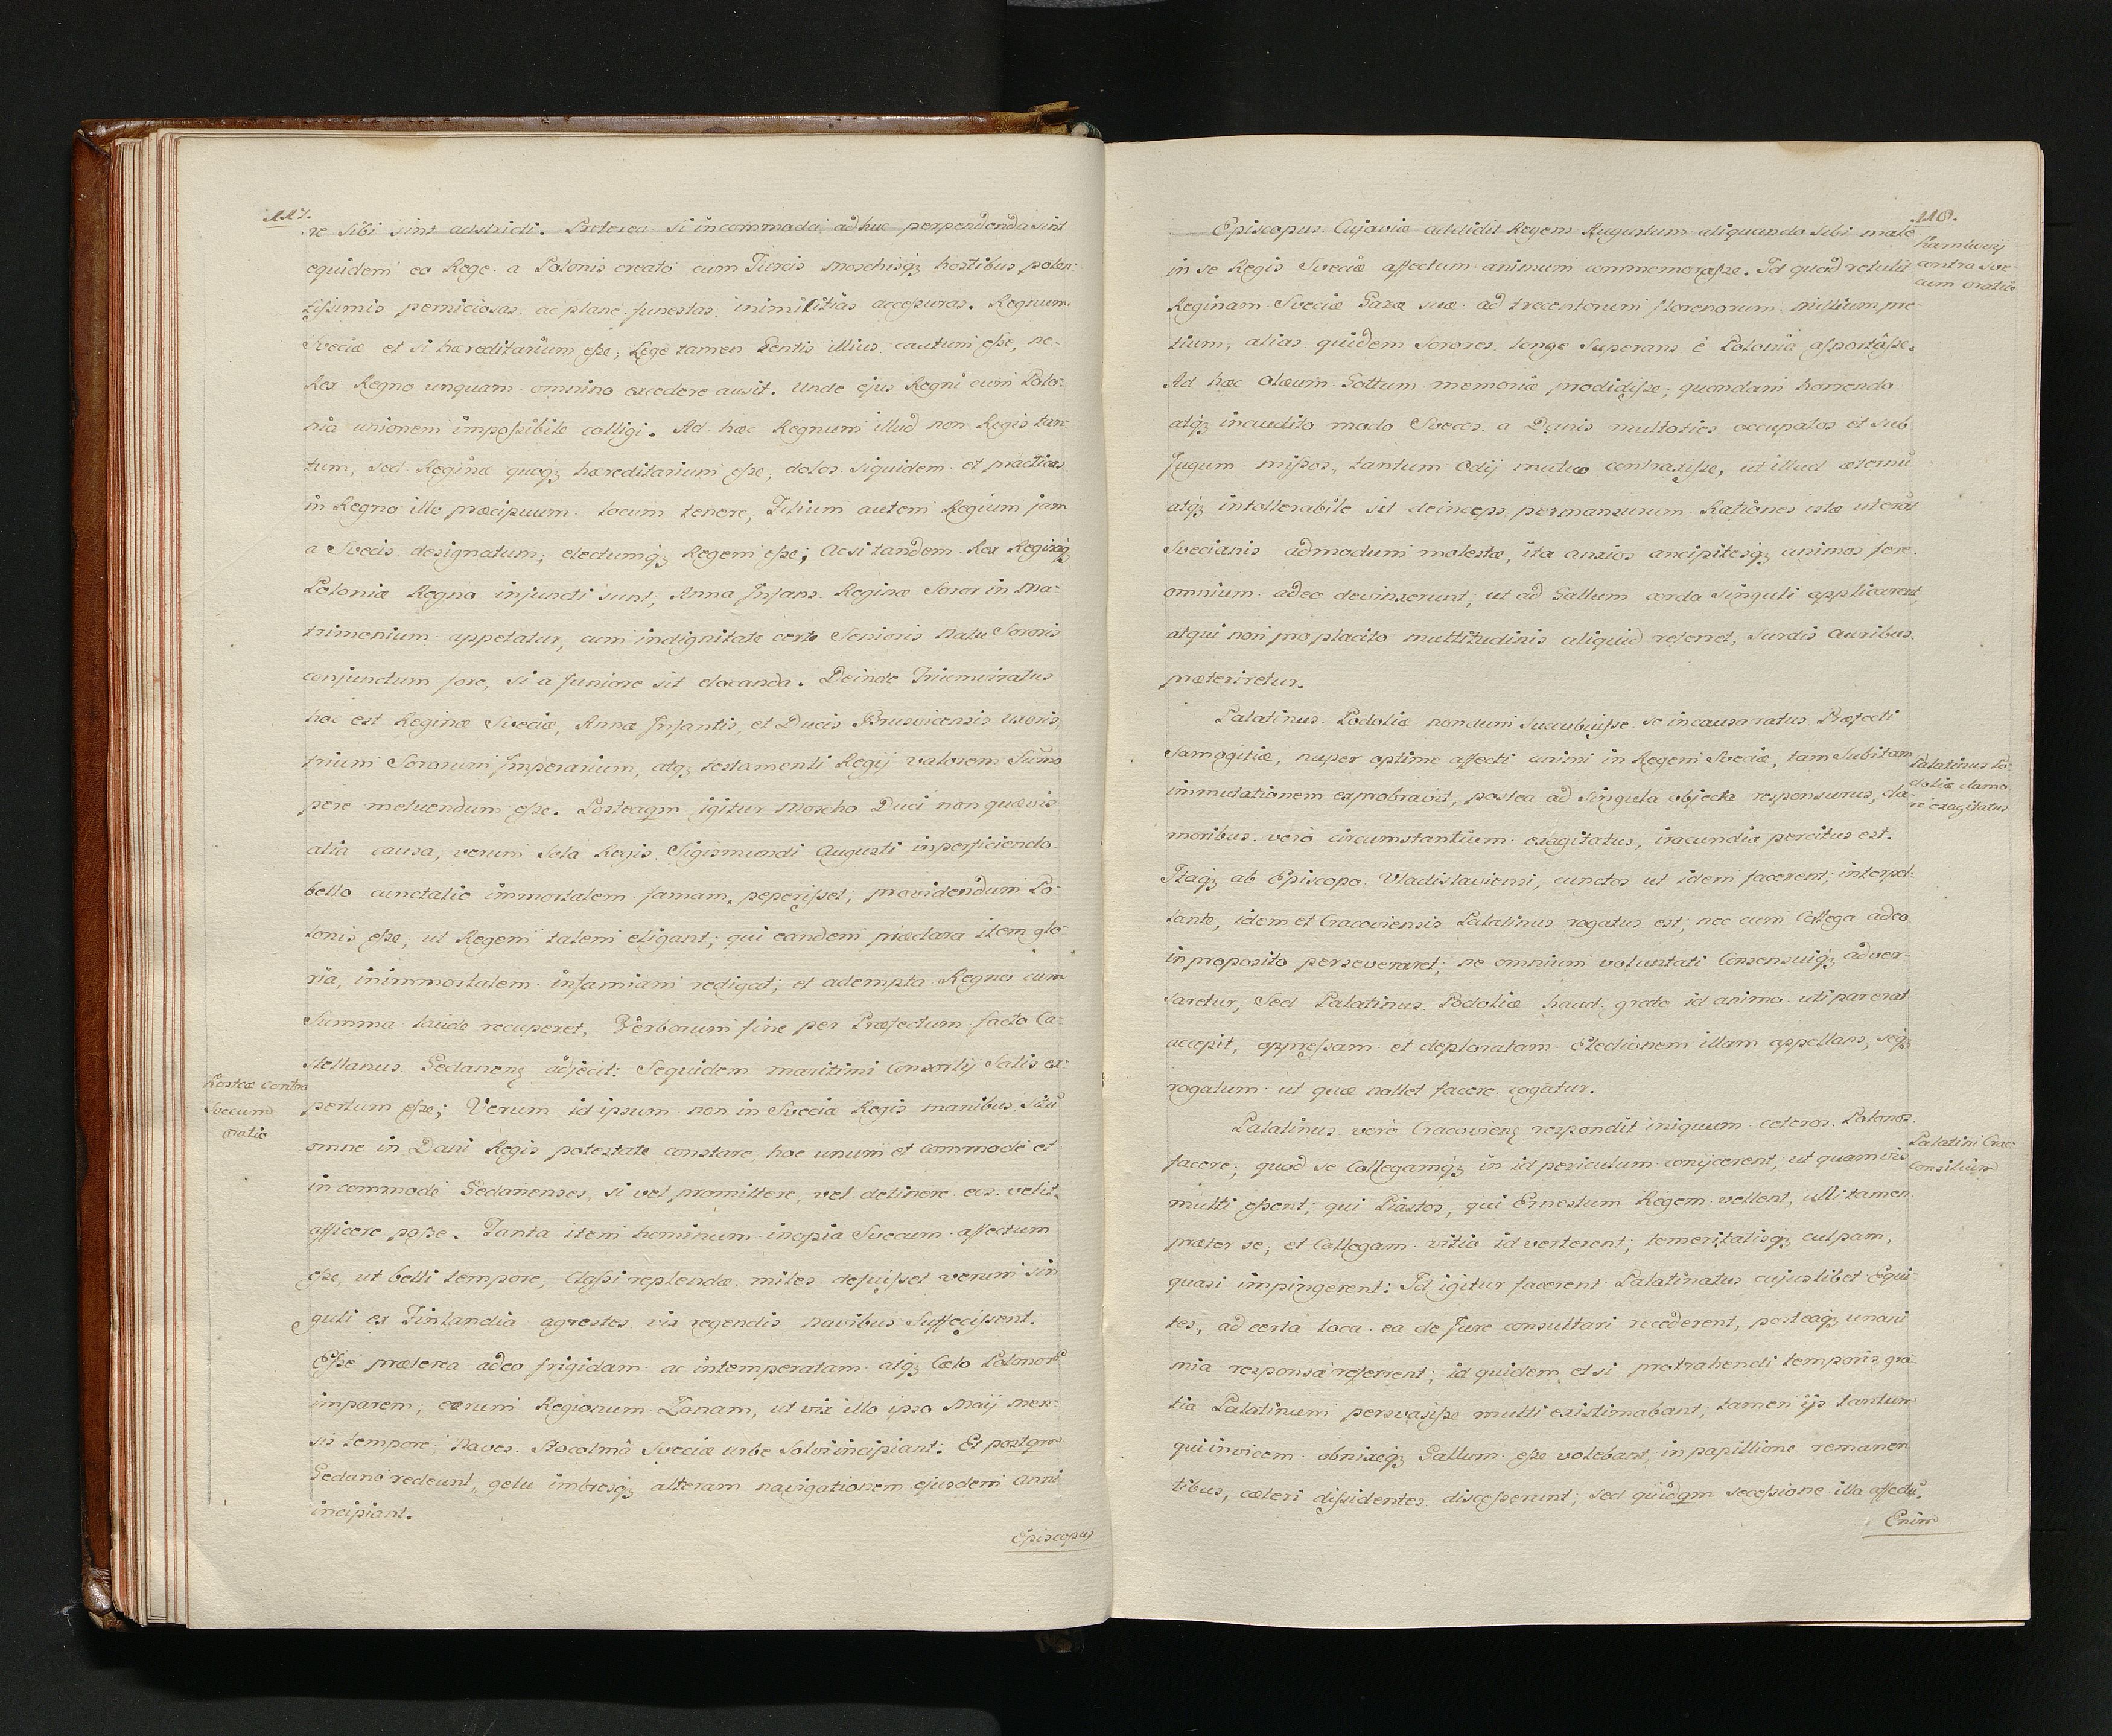 117.
re sibi sint adstricti. Preterea si incommoda adhuc perpendenda sint
equidem eo Rege a Polonis creato cum Turcis Moschisq; hostibus poten-
tissimis perniciosas ac plane funestas inimicitias accessuras. Regnum
Sveciæ et si hæreditarium esse; Lege tamen Gentis illius cautum esse, ne
Rex Regno unquam omnino excedere ausit. Unde ejus Regni cum Polo-
nia unionem impossibile colligi. Ad hæc Regnum illud non Regis tan-
tum, sed Reginæ quoq; hæreditarium esse; dolos siquidem et practicas
in Regno illo præcipuum locum tenere, Filium autem Regium jam
a Svecis designatum, electumq; Regem esse; ac si tandem Rex Reginaq;
Poloniæ Regno injuncti sunt, Anna Infans Reginæ Soror in Ma-
trimonium appetatur, cum indignitate certe Senioris Natu Sororis
conjunctum fore, si a Juniore sit elocanda. Deinde Triumviratus
hoc est Reginæ Sveciæ, Annæ Infantis, et Ducis Brusvicensis uxoris,
trium Sororum Imperarium, atq; testamenti Regij valorem Sumo
pere metuendum esse. Posteaqm igitur Moscho Duci non quævis
alia causa, verum sola Regis Sigismundi Augusti in perficiendo
bello cunctatio immortalem famam peperisset; providendum Po-
lonis esse, ut Regem talem eligant; qui eandem præclara item glo-
ria, in immortalem infamiam redigat; et adempta Regno cum
Summa laude recuperet, Verborum fine per Præfectum facto Ca-
stellanus Gedanens adjecit: Sequidem maritimi Consortij Satis ex-
Kostcæ contra
Svecum
oratio
pertum esse; Verum id ipsum non in Sveciæ Regis manibus situ
omne in Dani Regis potestate constare, hoc unum et commode et
incommode Gedanenses, si vel promittere, vel detinere eos velit,
afficere posse. Tanta item hominum inopia Svecum affectum
esse, ut belli tempore, Classi replendæ miles defuisset verum sin
guli ex Finlandia agrestes vix regendis navibus Suffecissent.
Esse præterea adeo frigidam ac intemperatam atq; Cælo Polonor
imparem; earum Regionum Zonam, ut vix illo ipso Maij men-
sis tempore; Naves Stocolmâ Sveciæ urbe Solvi incipiant: Et postqm
Gedano redeunt, gelu imbresq; alteram navigationem ejusdem Anni
incipiant.
Episcopus
118.
Episcopus Cujaviæ addidit Regem Augustum aliquando sibi male
Karnkovij
contra Sve-
cum oratio
in se Regis Sveciæ affectum animum commemorasse. Id quod retulit
Reginam Sveciæ Gazæ suæ ad trecentorum florenorum Millium pre-
tium, alias quidem Sorores longe Superans è Polonia asportasse.
Ad hæc Olaum Gottum memoriæ prodidisse; quondam horrendo
atq; inaudito modo Svecos a Danis multoties occupatos et sub
Jugum missos, tantum Odij mutuo contraxisse, ut illud æternu
atq; intollerabile sit deinceps permansurum Rationes istæ ut erat
Svecianis admodum molestæ, ita anxios ancipitesq; animos fere
omnium adeo devinxerunt; ut ad Gallum corda Singuli applicarent,
atqui non pro placito multitudinis aliquid referret, surdis auribus
præteriretur.
Palatinus Podoliæ nondum succubuisse se in causa ratus Præfecti
Samogitiæ, nuper optime affecti animi in Regem Sveciæ, tam Subitam
Palatinus Po-
doliæ clamo
re exagitatus
immutationem exprobravit, postea ad singula objecta responsurus, cla-
moribus vero circumstantium exagitatus, iracundia percitus est.
Itaq; ab Episcopo Vladislaviensi, cunctos ut idem facerent, interpel-
lante, idem et Cracoviensis Palatinus rogatus est, nec cum Collega adeo
in proposito perseveraret; ne omnium voluntati Consensuiq; adver-
saretur, Sed Palatinus Podoliæ haud grato id animo uti par erat
accepit, oppressam et deploratam Electionem illam appellans, seq;
rogatum ut quæ nollet facere cogatur.
Palatinus vero Cracoviens respondit iniquum ceteros Polonos
Palatini Crac
Consilium
facere; quod se Collegamq; in id periculum conijcerent, ut quamvis
multi essent; qui Piastos, qui Ernestum Regem vellent, illi tamen
præter se, et Collegam vitio id verterent; temeritatisq; culpam,
quasi impingerent: Id igitur facerent Palatinatus cujuslibet Equi-
tes, ad certa loca ea de Jure consultari recederent, posteaq; unani
mia responsa referrent; id quidem et si protrahendi temporis gra-
tia Palatinum persvasisse multi existimabant; tamen ijs tantum
qui invicem obnixeq; Gallum esse volebant, in papillione remanen
tibus, cæteri dissidentes discesserunt; sed quidqm secessione illa affectu
Enim